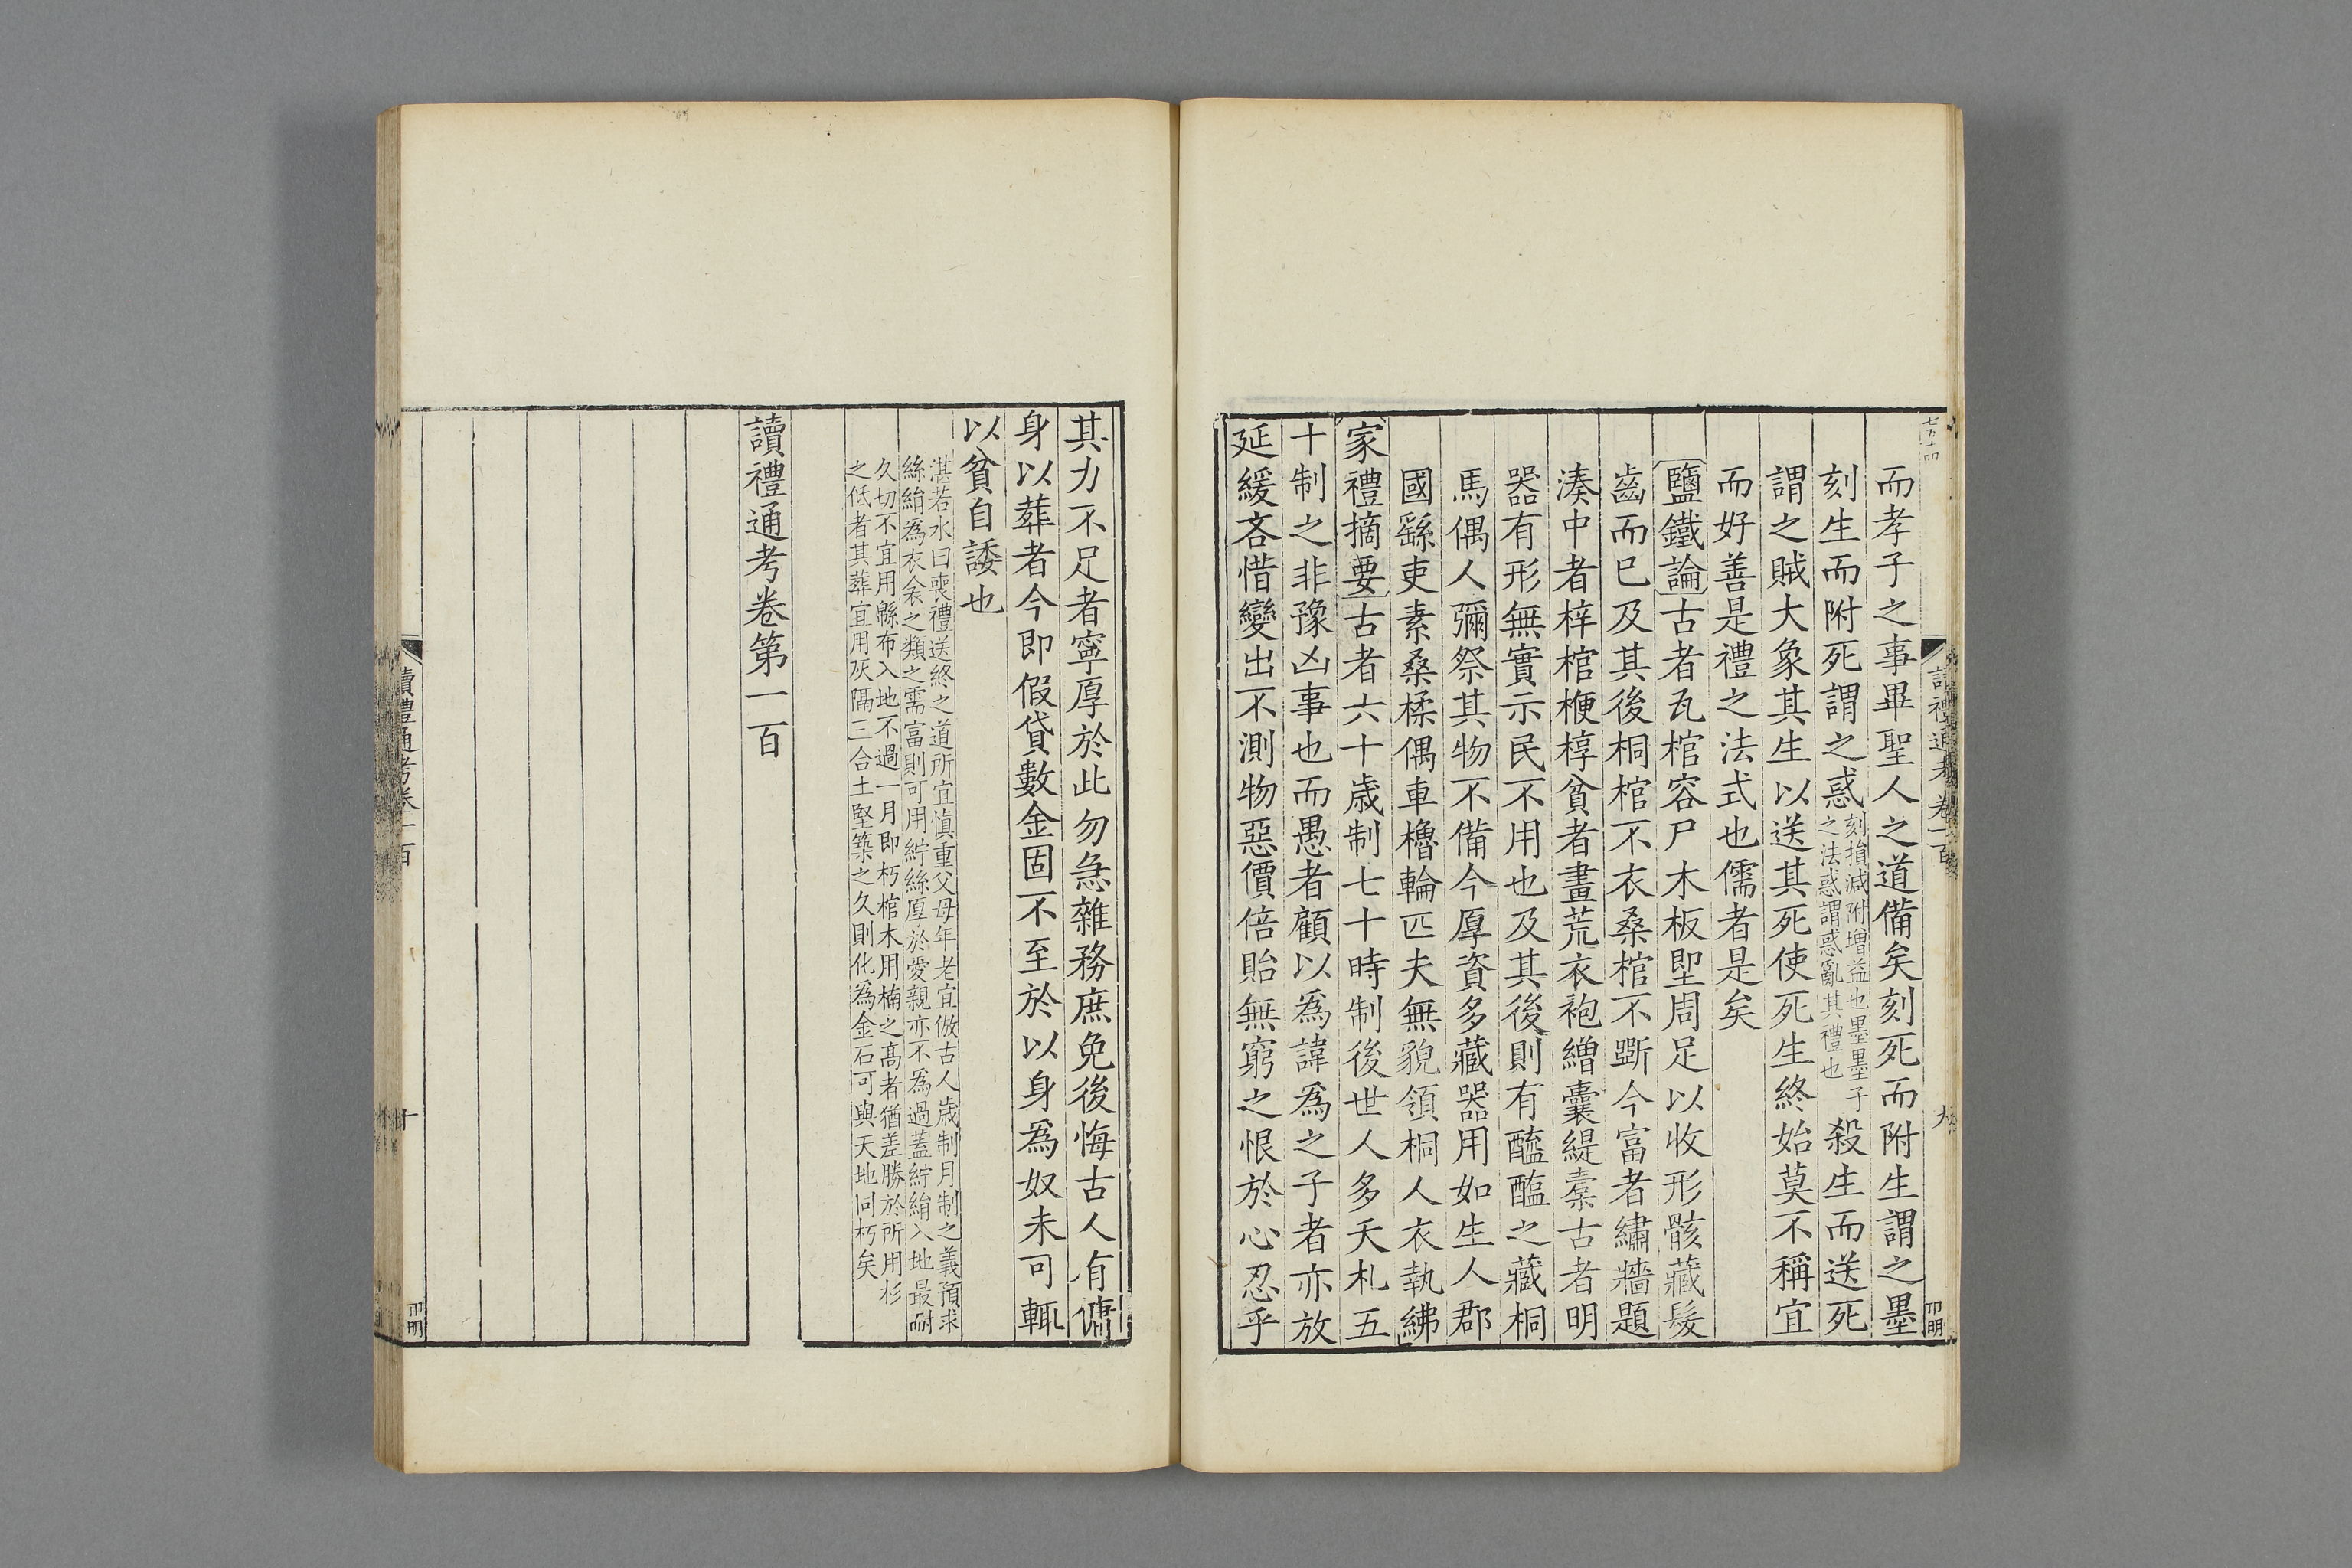 而孝子之事畢聖人之道備矣刻死而附生謂之墨
刻生而附死謂之惑刻損減附增益也墨墨子之法惑謂惑亂其禮也殺生而送死
謂之賊大象其生以送其死使死生終始莫不稱宜
而好善是禮之法式也儒者是矣
鹽鐵論古者瓦棺容尸木板堲周足以收形骸藏髮
齒而已及其後桐棺不衣桑棺不斲今富者繡牆題
湊中者梓棺楩椁貧者畫荒衣袍繒囊緹橐古者明
器有形無實示民不用也及其後則有醯醢之藏桐
馬偶人彌祭其物不備今厚資多藏器用如生人郡
國繇吏素桑楺偶車櫓輪匹夫無貌領桐人衣執綈
家禮摘要古者六十歲制七十時制後世人多夭札五
十制之非豫凶事也而愚者顧以爲諱爲之子者亦放
延緩吝惜變出不測物惡價倍貽無窮之恨於心忍乎
讀禮通考卷一百
九
其力不足者寧厚於此勿急雜務庶免後悔古人有傭
身以葬者今即假貸數金固不至於以身爲奴未可輒
以貧自諉也
湛若水曰喪禮送終之道所宜慎重父母年老宜倣古人歲制月制之義預求
絲絹爲衣衾之類之需富則可用紵絲厚於愛親亦不爲過蓋紵絹入地最耐
久切不宜用緜布入地不過一月即朽棺木用楠之高者猶差勝於所用杉
之低者其葬宜用灰隔三合土堅築之久則化爲金石可與天地同朽矣
讀禮通考卷第一百
讀禮通考卷一百
十